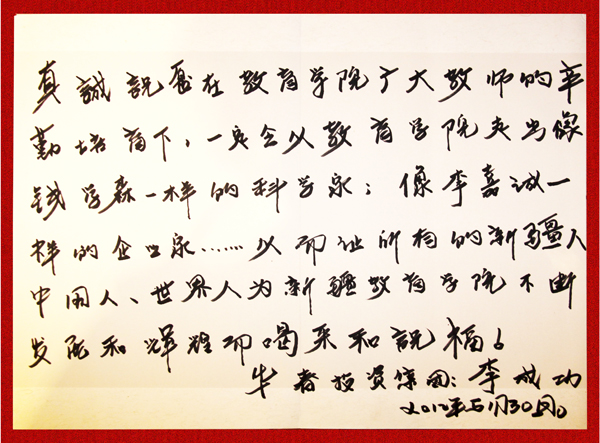 真誠祝愿在教育学院广大教师的辛
勤培育下,一定会从教育学院走出像
钱学森一样的科学家;像李嘉诚一
样的企业家……从而让所有的新疆人
中国人、世界人为新疆教育学院不断
发展和辉煌而喝采和祝福!
投资集团:李成功
2010年5月30日